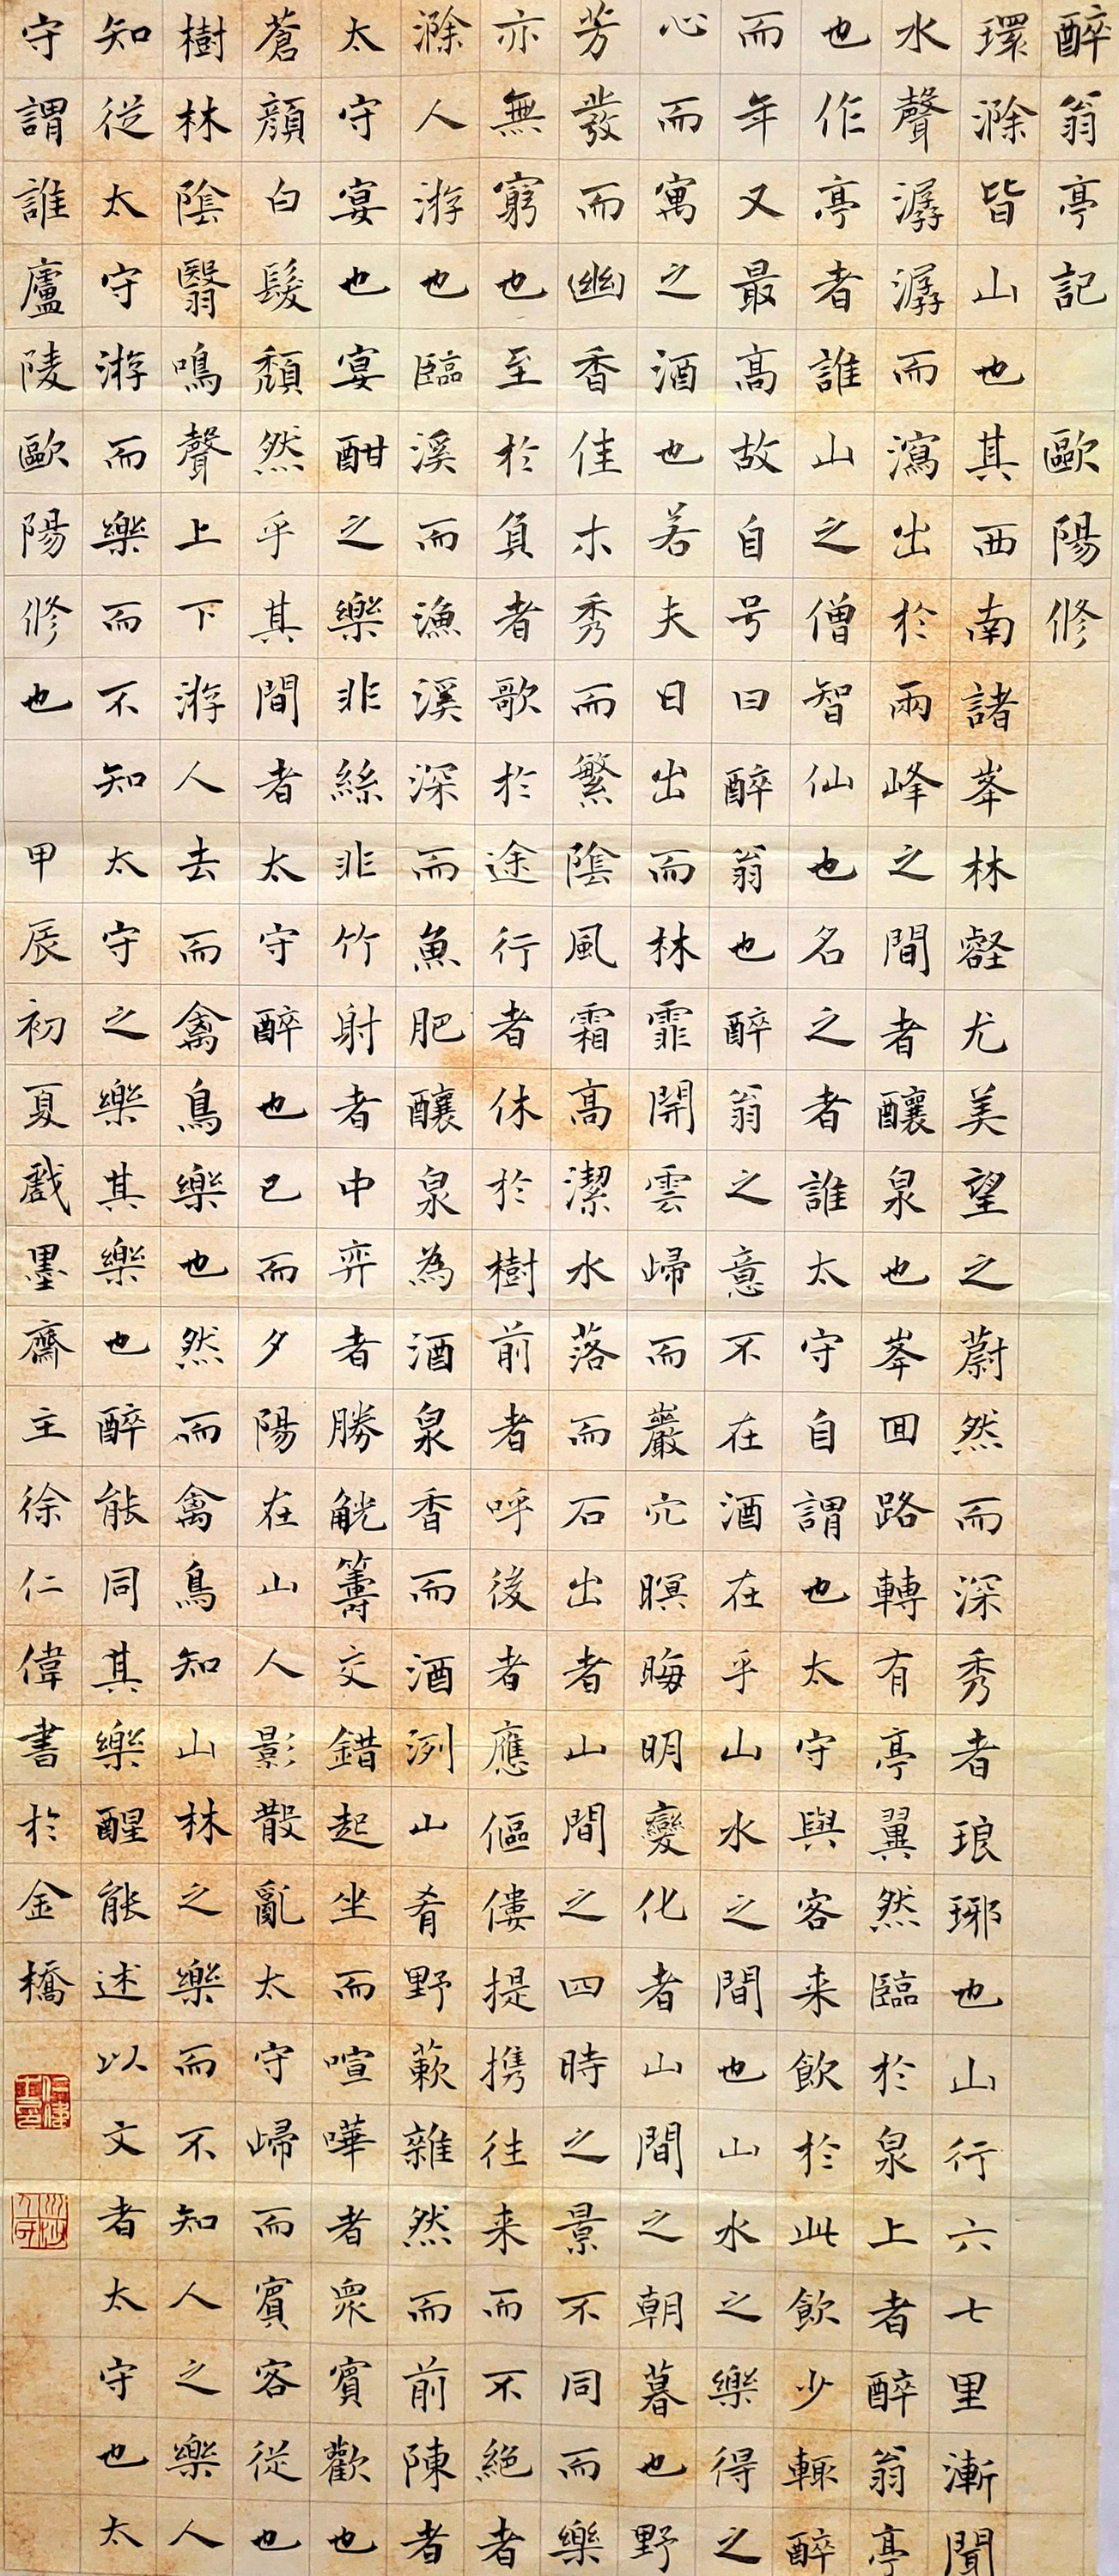 醉翁亭記 歐陽修
環滁皆山也其西南諸峯林壑尤美望之蔚然而深秀者琅琊也山行六七里漸聞
水聲潺潺而瀉出於兩峰之間者釀泉也峯回路轉有亭翼然臨於泉上者醉翁亭
也作亭者誰山之僧智仙也名之者誰太守自謂也太守與客来飲於此飲少輒醉
而年又最高故自号曰醉翁也醉翁之意不在酒在乎山水之間也山水之樂得之
心而寓之酒也若夫日出而林霏開雲歸而巖穴暝晦明變化者山間之朝暮也野
芳發而幽香佳木秀而繁陰風霜高潔水落而石出者山間之四時之景不同而樂
亦無窮也至於負者歌於途行者休於樹前者呼後者應傴僂提携往来而不絕者
滁人游也臨溪而漁溪深而魚肥釀泉為酒泉香而酒洌山肴野蔌雜然而前陳者
太守宴也宴酣之樂非絲非竹射者中弈者勝觥籌交錯起坐而喧嘩者眾賓歡也
蒼顏白髮頹然乎其間者太守醉也已而夕陽在山人影散亂太守歸而賓客從也
樹林陰翳鳴聲上下游人去而禽鳥樂也然而禽鳥知山林之樂而不知人之樂人
知從太守游而樂而不知太守之樂其樂也醉能同其樂醒能述以文者太守也太
守謂誰廬陵歐陽修也 甲辰初夏戲墨齋主徐仁偉書於金橋